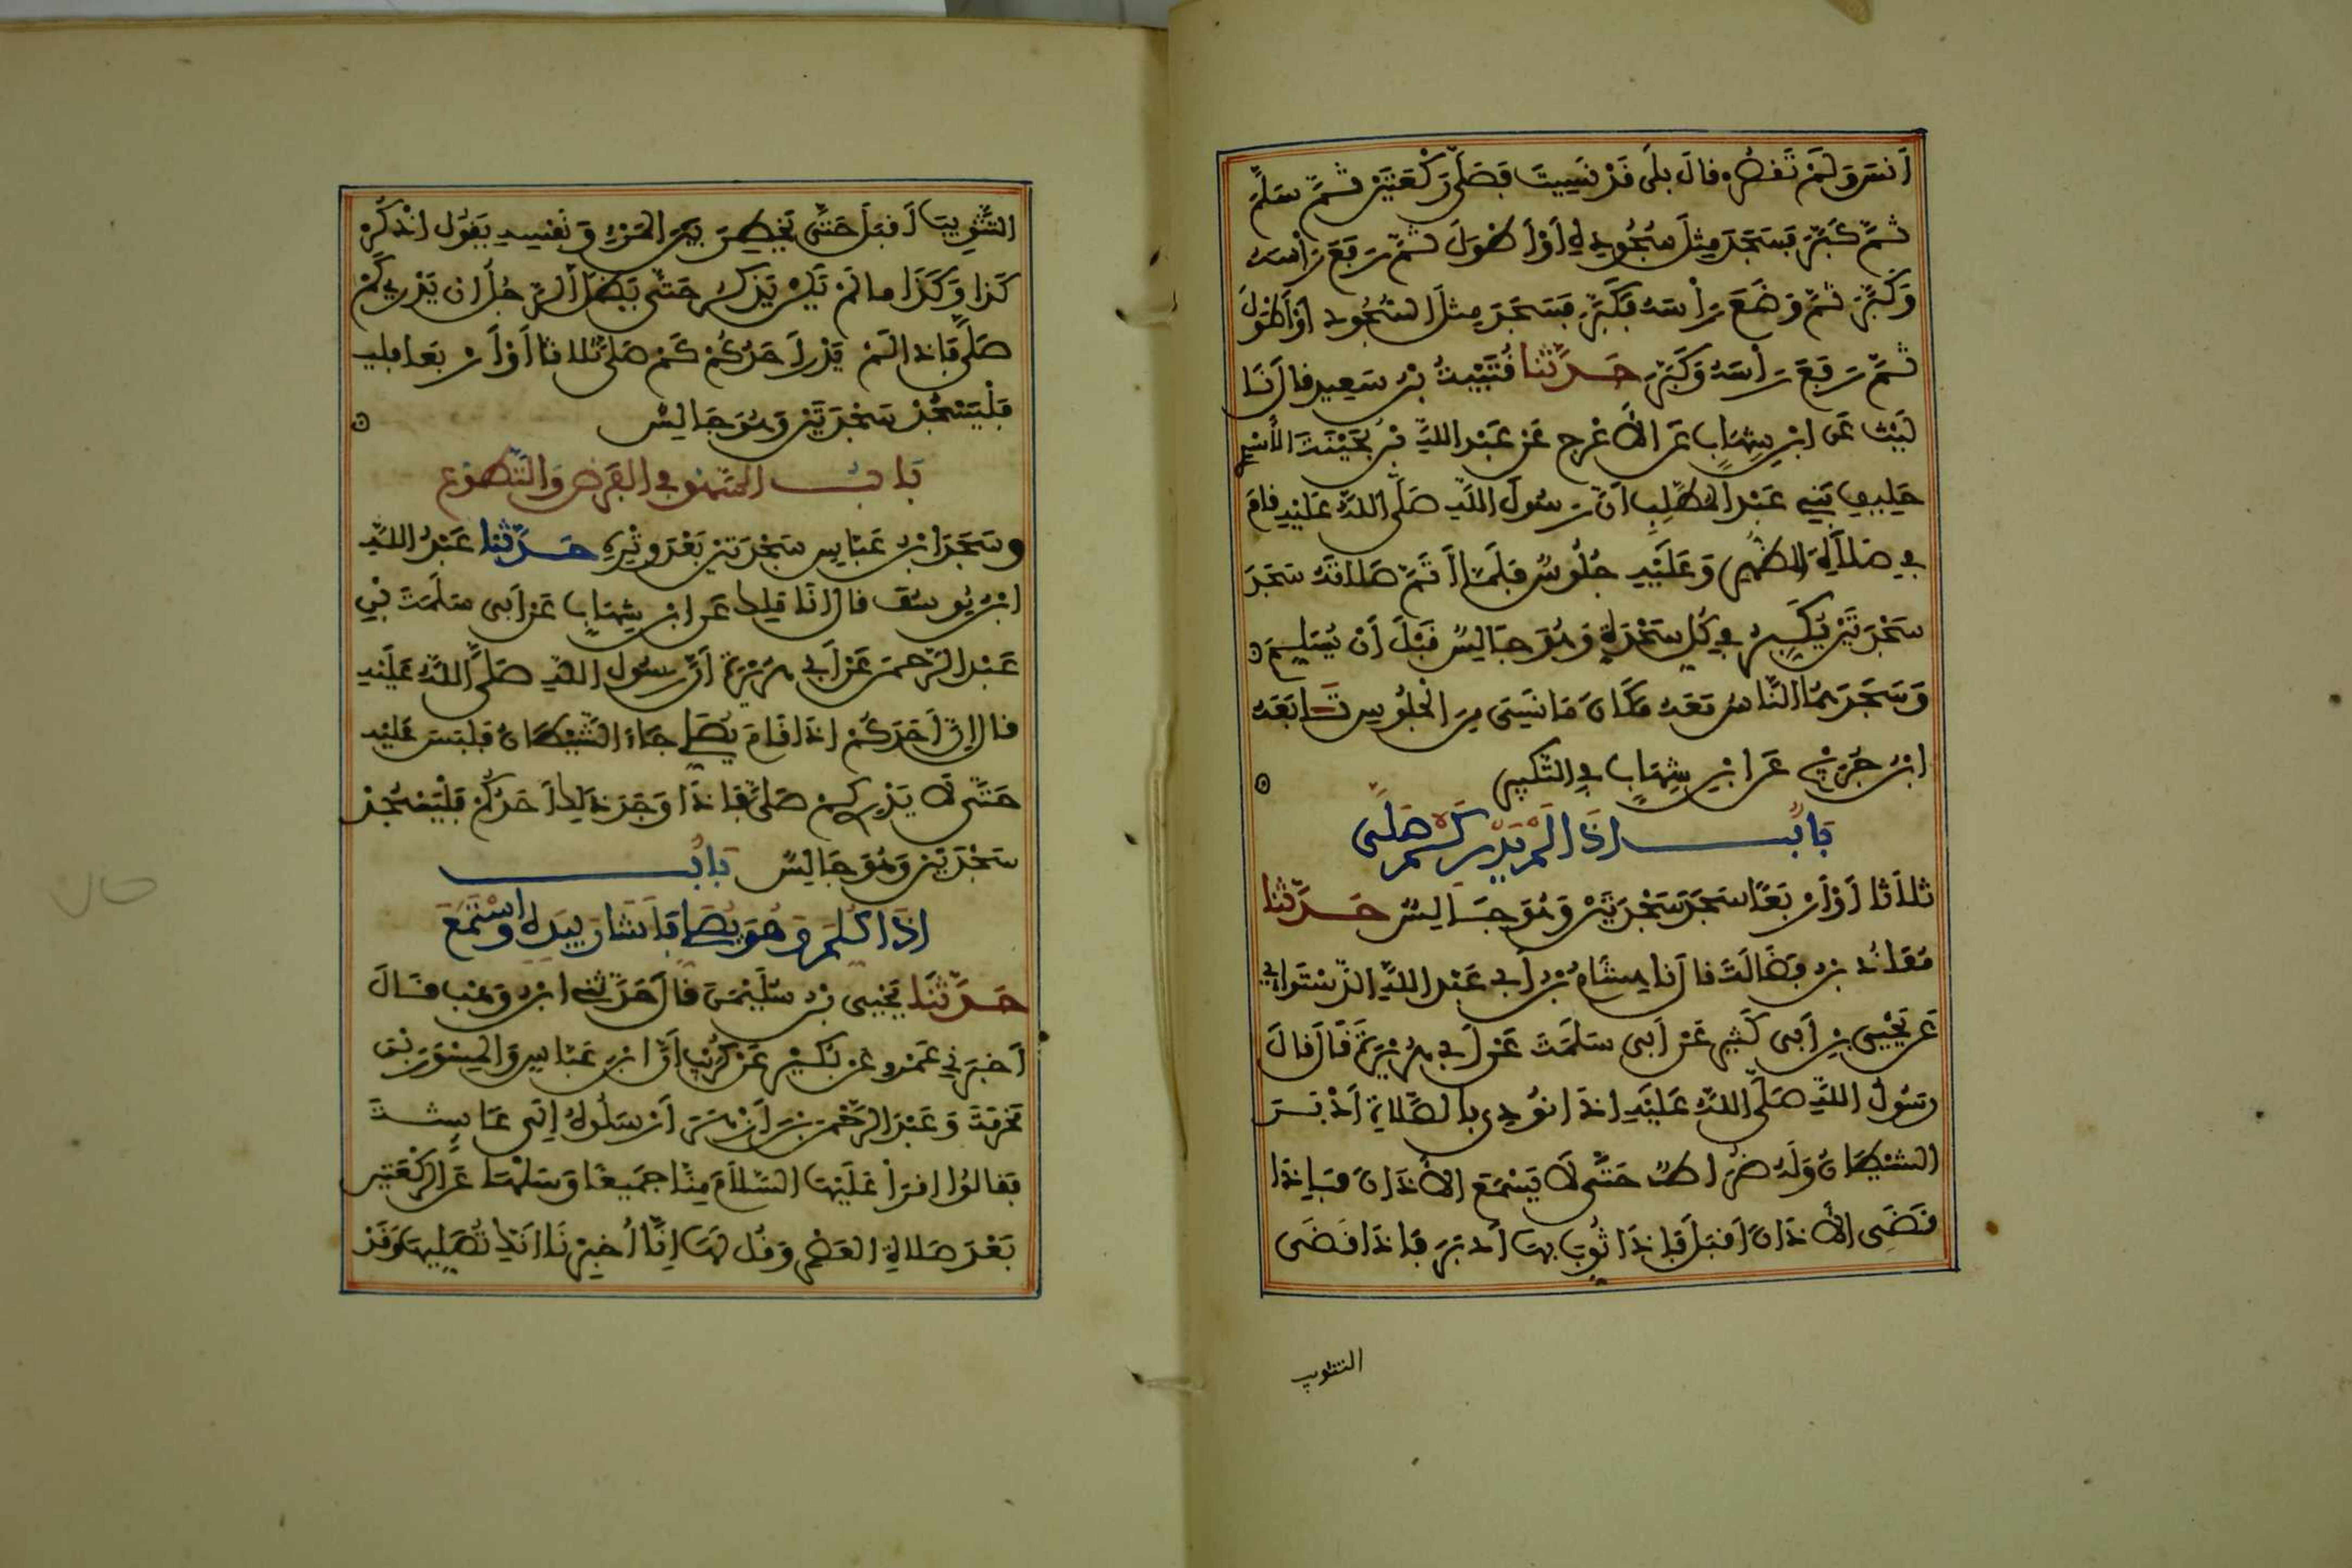 أَنسَ وَلَمْ تَقْصُرْ فَقالَ بلَى قَدْ نَسِيتَ فَصَلَّى رَكْعَتَيْنِ ثُمَّ سَلَّمَ
ثُمَّ كَبَّرَ فَسَجَدَ مِثْلَ سُجُودِهِ أَوْ أَطْوَلَ ثُمَّ رَفَعَ رَأْسَهُ
وَكَبَّرَ ثُمَّ وَضَعَ رَأْسَهُ فَكَبَّرَ فَسَجَدَ مِثْلَ السُّجُودِ أَوْ أَطْوَلَ
ثُمَّ رَفَعَ رَأْسَهُ وَكَبَّرَ حَدَّثَنَا قُتَيْبَةُ بْنُ سَعِيدٍ قال نَا
لَيْثٌ عَنِ ابْنِ شِهَابٍ عَنِ الأَعْرَجِ عَنْ عَبْدِ اللَّهِ بْنِ بُحَيْنَةَ الأَسْدِيِّ
حَلِيفِ بَنِي عَبْدِ المُطَّلِبِ أَنَّ رَسُولَ اللَّهِ صَلَّى اللَّهُ عَلَيْهِ قَامَ
فِي صَلاَةِ الظُّهْرِ وَعَلَيْهِ جُلُوسٌ فَلَمَّا أَتَمَّ صَلاَتَهُ سَجَدَ
سَجْدَتَيْنِ يُكَبِّرُ فِي كُلِّ سَجْدَةٍ وَهُوَ جَالِسٌ قَبْلَ أَنْ يُسَلِّمَ
وَسَجَدَهُمَا النَّاسُ مَعَهُ مَكَانَ مَا نَسِيَ مِنَ الْجُلُوسِ تَابَعَهُ
ابْنُ جُرَيْجٍ عَنِ ابْنِ شِهَابٍ فِي التَّكْبِيرِ
بَابُ إِذَا لَمْ يَدْرِ كَمْ صَلَّى
ثَلاَثًا أَوْ أَرْبَعًا سَجَدَ سَجْدَتَيْنِ وَهُوَ جَالِسٌ حَدَّثَنَا
مُعَاذُ بْنُ فَضَالَةَ قال نَا هِشَامُ بْنُ أَبِي عَبْدِ اللَّهِ الدَّسْتَوَائِي
عَنْ يَحْيَى بْنِ أَبِي كَثِيرٍ عَنْ أَبِي سَلَمَةَ عَنْ أَبِي هُرَيْرَةَ قَالَ قَالَ
رَسُولُ اللَّهِ صَلَّى اللَّهُ عَلَيْهِ إِذَا نُودِيَ بِالصَّلاَةِ أَدْبَرَ
الشَّيْطَانُ وَلَهُ ضُرَاطٌ حَتَّى لاَ يَسْمَعَ الأَذَانَ فَإِذَا
قُضِيَ الأَذَانُ أَقْبَلَ فَإِذَا ثُوِّبَ بِهَا أَدْبَرَ فَإِذَا قُضِيَ
التثويب
التَّثْوِيبُ أَقْبَلَ حَتَّى يَخْطِرَ بَيْنَ المَرْءِ وَنَفْسِهِ يَقُولُ اذْكُرْ
كَذَا وَكَذَا مَا لَمْ يَكُنْ يَذْكُرُ حَتَّى يَضَلَّ الرَّجُلُ إِنْ يَدْرِي كَمْ
صَلَّى فَإِذَا لَمْ يَدْرِ أَحَدُكُمْ كَمْ صَلَّى ثَلاَثًا أَوْ أَرْبَعًا
فَلْيَسْجُدْ سَجْدَتَيْنِ وَهُوَ جَالِسٌ
بَابُ السَّهْوِ فِي الفَرْضِ وَالتَّطَوُّعِ
وَسَجَدَ ابْنُ عَبَّاسٍ سَجْدَتَيْنِ بَعْدَ وِتْرِهِ حَدَّثَنَا عَبْدُ اللَّهِ
ابْنُ يُوسُفَ قال أَنَا مَالِكٌ عَنِ ابْنِ شِهَابٍ عَنْ أَبِي سَلَمَةَ بْنِ
عَبْدِ الرَّحْمَنِ عَنْ أَبِي هُرَيْرَةَ أَنَّ رَسُولَ اللَّهِ صَلَّى اللَّهُ عَلَيْهِ
قال إِنَّ أَحَدَكُمْ إِذَا قَامَ يُصَلِّي جَاءَ الشَّيْطَانُ فَلَبَسَ عَلَيْهِ
حَتَّى لاَ يَدْرِي كَمْ صَلَّى فَإِذَا وَجَدَ ذَلِكَ أَحَدُكُمْ فَلْيَسْجُدْ
سَجْدَتَيْنِ وَهُوَ جَالِسٌ بَابُ
إِذَا كُلِّمَ وَهُوَ يُصَلِّي فَأَشَارَ بِيَدِهِ وَاسْتَمَعَ
حَدَّثَنَا يَحْيَى بْنُ سُلَيْمَنَ قَالَ حَدَّثَنِي ابْنُ وَهْبٍ قَالَ
أَخْبَرَنِي عَمْرٌو عَنْ بُكَيْرٍ عَنْ كُرَيْبٍ أَنَّ ابْنَ عَبَّاسٍ وَالْمِسْوَرَ بْنَ
مَخْرَمَةَ وَعَبْدَ الرَّحْمَنِ بْنَ أَزْهَرَ أَرْسَلُوهُ إِلَى عَائِشَةَ
فَقَالُوا اقْرَأْ عَلَيْهَا السَّلاَمَ مِنَّا جَمِيعًا وَسَلْهَا عَنِ الرَّكْعَتَيْنِ
بَعْدَ صَلاَةِ العَصْرِ وَقُلْ لَهَا إِنَّا أُخْبِرْنَا أَنَّكِ تُصَلِّيهَا وَقَدْ